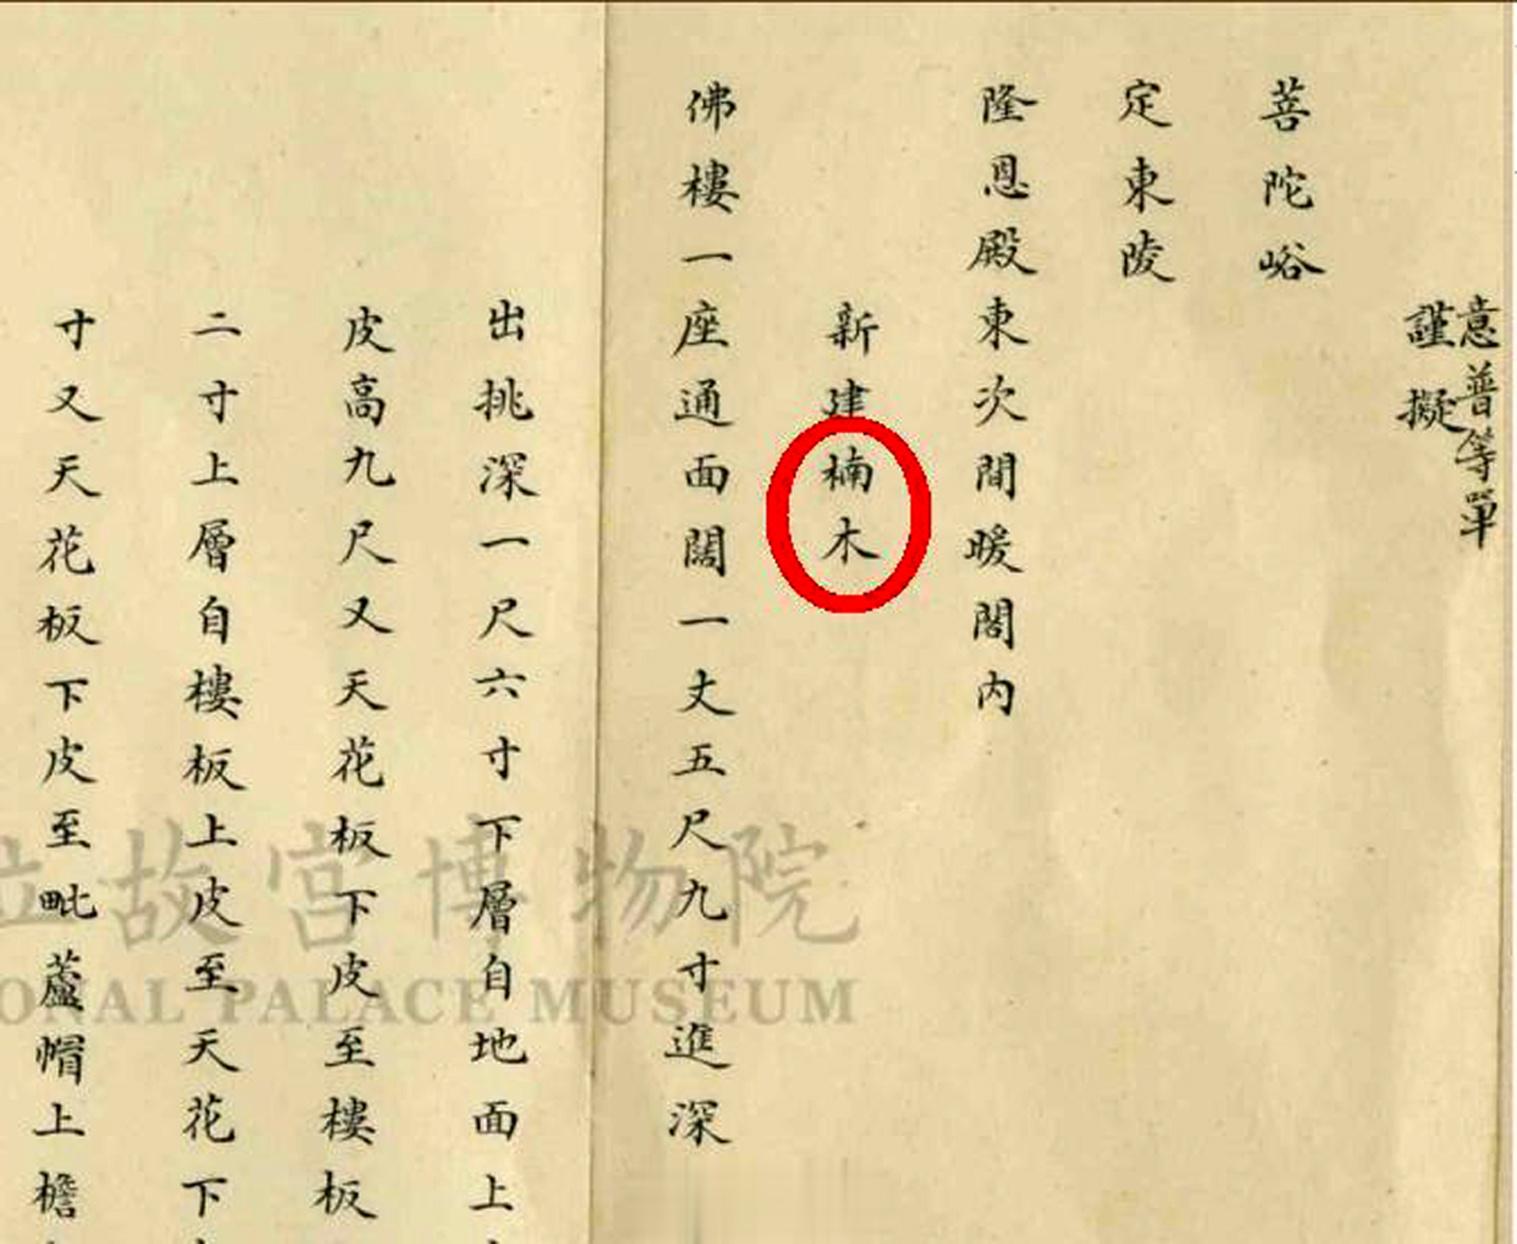 意普等單
謹擬
菩陀峪
定東陵
隆恩殿東次間暖閣内
新建楠木
佛樓一座通面闊一丈五尺九寸進深
出挑深一尺六寸下層自地面上
皮高九尺又天花板下皮至樓板
二寸上層自樓板上皮至天花下
寸又天花板下皮至毗蘆帽上檐
立故宮博物院
ONAL PALACE MUSEUM